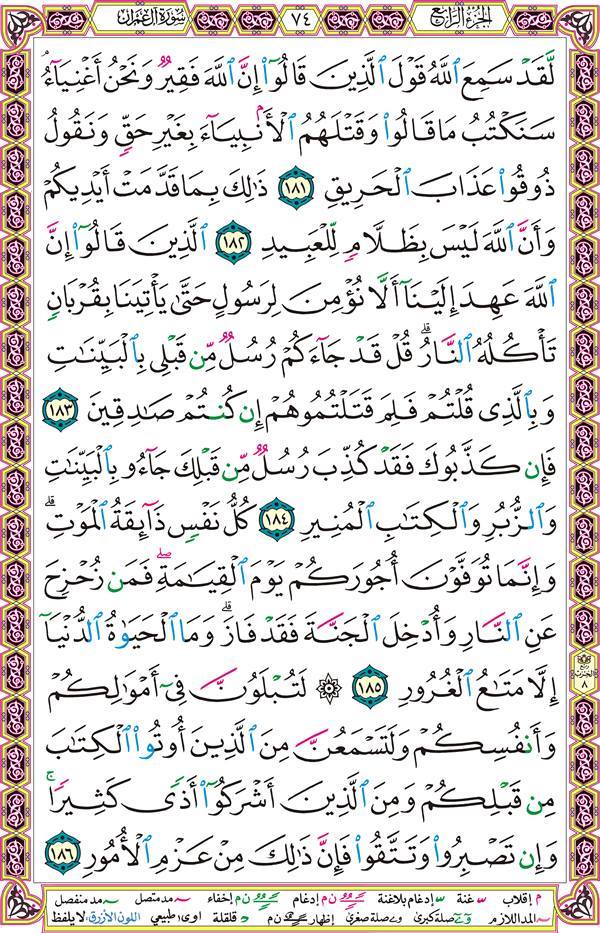 سُورَةُ آلِ عِمْرَان ٧٤ الجُزءُ الرَّابِعُ
لَّقَدْ سَمِعَ ٱللَّهُ قَوْلَ ٱلَّذِينَ قَالُوٓا۟ إِنَّ ٱللَّهَ فَقِيرٌ وَنَحْنُ أَغْنِيَآءُ ۘ
سَنَكْتُبُ مَا قَالُوا۟ وَقَتْلَهُمُ ٱلْأَنۢبِيَآءَ بِغَيْرِ حَقٍّ وَنَقُولُ
ذُوقُوا۟ عَذَابَ ٱلْحَرِيقِ ١٨١ ذَٰلِكَ بِمَا قَدَّمَتْ أَيْدِيكُمْ
وَأَنَّ ٱللَّهَ لَيْسَ بِظَلَّامٍ لِّلْعَبِيدِ ١٨٢ ٱلَّذِينَ قَالُوٓا۟ إِنَّ
ٱللَّهَ عَهِدَ إِلَيْنَآ أَلَّا نُؤْمِنَ لِرَسُولٍ حَتَّىٰ يَأْتِيَنَا بِقُرْبَانٍ
تَأْكُلُهُ ٱلنَّارُ ۗ قُلْ قَدْ جَآءَكُمْ رُسُلٌ مِّن قَبْلِى بِٱلْبَيِّنَٰتِ
وَبِٱلَّذِى قُلْتُمْ فَلِمَ قَتَلْتُمُوهُمْ إِن كُنتُمْ صَٰدِقِينَ ١٨٣
فَإِن كَذَّبُوكَ فَقَدْ كُذِّبَ رُسُلٌ مِّن قَبْلِكَ جَآءُو بِٱلْبَيِّنَٰتِ
وَٱلزُّبُرِ وَٱلْكِتَٰبِ ٱلْمُنِيرِ ١٨٤ كُلُّ نَفْسٍ ذَآئِقَةُ ٱلْمَوْتِ ۗ
وَإِنَّمَا تُوَفَّوْنَ أُجُورَكُمْ يَوْمَ ٱلْقِيَٰمَةِ ۖ فَمَن زُحْزِحَ
عَنِ ٱلنَّارِ وَأُدْخِلَ ٱلْجَنَّةَ فَقَدْ فَازَ ۗ وَمَا ٱلْحَيَوٰةُ ٱلدُّنْيَآ
إِلَّا مَتَٰعُ ٱلْغُرُورِ ١٨٥ ۞ لَتُبْلَوُنَّ فِىٓ أَمْوَٰلِكُمْ
وَأَنفُسِكُمْ وَلَتَسْمَعُنَّ مِنَ ٱلَّذِينَ أُوتُوا۟ ٱلْكِتَٰبَ
مِن قَبْلِكُمْ وَمِنَ ٱلَّذِينَ أَشْرَكُوٓا۟ أَذًى كَثِيرًا ۚ
وَإِن تَصْبِرُوا۟ وَتَتَّقُوا۟ فَإِنَّ ذَٰلِكَ مِنْ عَزْمِ ٱلْأُمُورِ ١٨٦
م إقلاب غنة إدغام بلاغنة ن م إدغام ن م إخفاء مد متصل مد منفصل
المد اللازم صلة كبرى صلة صغرى إظهار ن م قلقلة اوى طبيعي اللون الأزرق: لا يلفظ